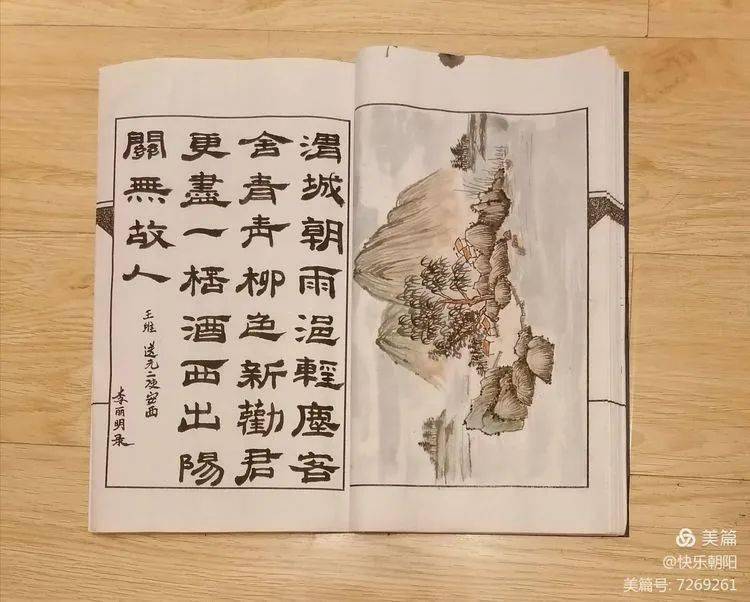 渭城朝雨浥輕塵客
舍青青柳色新勸君
更盡一桮酒西出陽
關無故人
王維 送元二使安西
李丽明录
美篇
@快乐朝阳
美篇号: 7269261